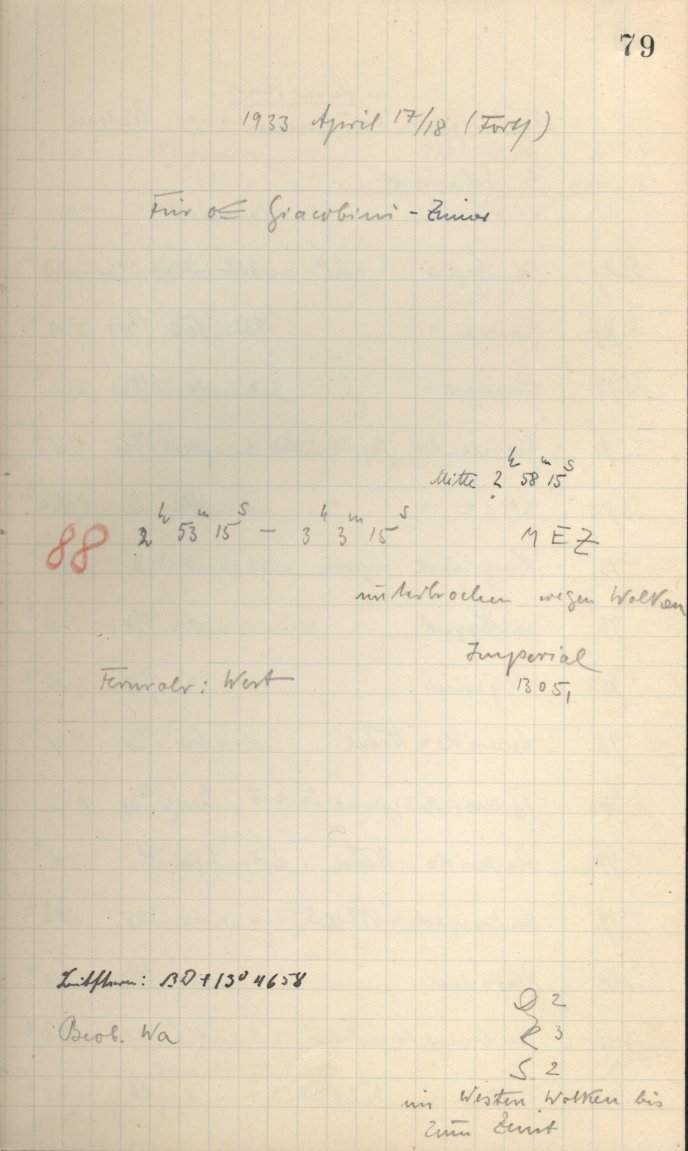 79
1933 April 17/18 (Forts)
Für ☄ Giacobini - Zinner
Mitte 2h 58m 15s
88 2h 53m 15s — 3h 3m 15s MEZ
unterbrochen wegen Wolken
Imperial
Fernrohr: West
1305,
Leitstern: BD + 13° 4658
Beob. Wa
2
R 3
S 2
im Westen Wolken bis
zum Zenit